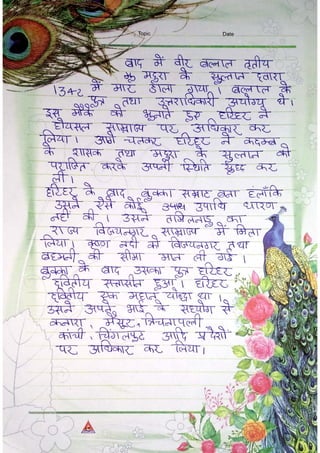 Topic Date
बाद में वीर बल्लाल तृतीय
भू मदुरा के सुल्तान द्वारा
1342 में मार डाला गया। बल्लाल के
पुत्र तथा उत्तराधिकारी अयोग्य थे।
इस मौके को भुनाते हुए हरिहर ने
होयसल साम्राज्य पर अधिकार कर
लिया। आगे चलकर हरिहर ने कदम्ब
के शासक तथा मदुरा के सुल्तान को
पराजित करके अपनी स्थिति सुदृढ कर
ली।
हरिहर के बाद बुक्का सम्राट बना हलाँकि
उसने ऐसी कोई उपाधि धारण
नहीं की। उसने तमिलनाडु का
राज्य विजयनगर साम्राज्य में मिला
लिया। कृष्णा नदी को विजयनगर तथा
बहमनी की सीमा मान ली गई।
बुक्का के बाद उसका पुत्र हरिहर
द्वितीय सत्तासीन हुआ। हरिहर
द्वितीय एक महान योद्धा था।
उसने अपने भाई के सहयोग से
कनारा, मैसूर, त्रिचनापल्ली,
कांची, चिंगलपुट आदि प्रदेशों
पर अधिकार कर लिया।